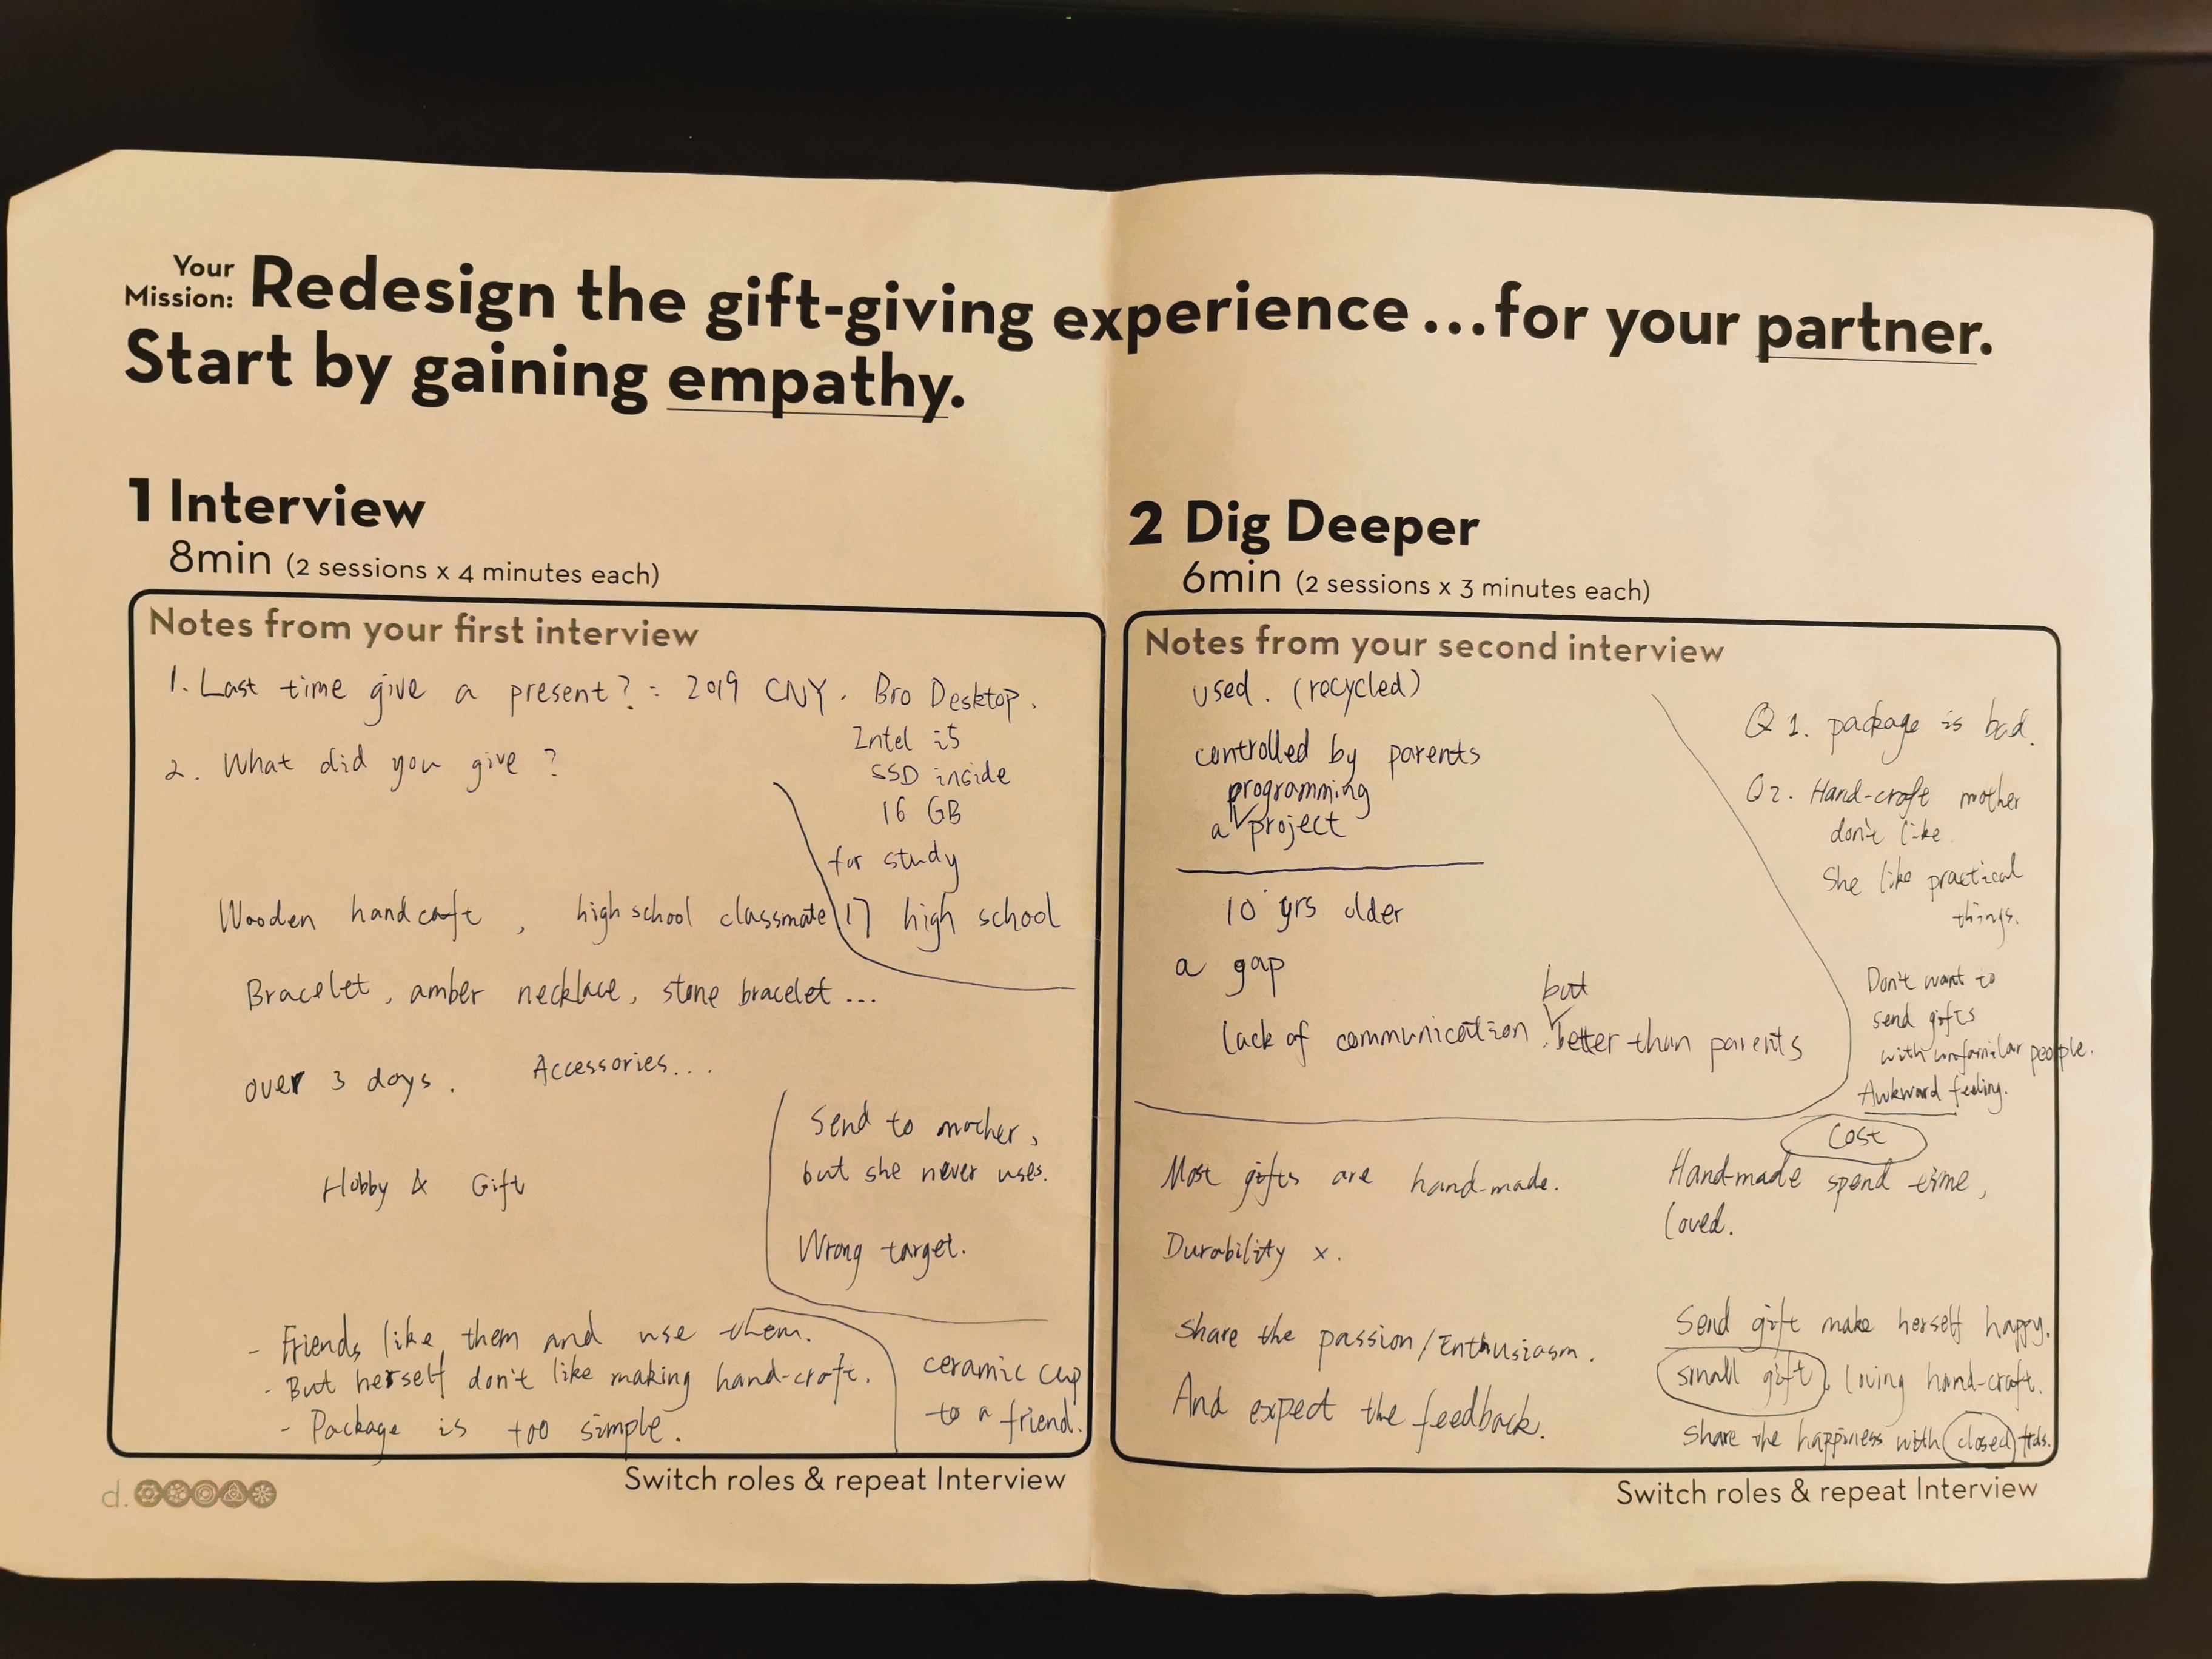 Your
Mission: Redesign the gift-giving experience...for your partner.
Start by gaining empathy.
1 Interview
8min (2 sessions x 4 minutes each)
Notes from your first interview
1. Last time give a present? = 2019 CNY. Bro Desktop.
Intel i5
SSD inside
16 GB
for study
17 high school
2. What did you give?
Wooden handcaft, high school classmate
Bracelet, amber necklace, stone bracelet...
over 3 days. Accessories...
Hobby & Gift
Send to mother,
but she never uses.
Wrong target.
- Friends like them and use them.
- But herself don't like making hand-craft.
- Package is too simple.
ceramic cup
to a friend.
Switch roles & repeat Interview
d.
2 Dig Deeper
6min (2 sessions x 3 minutes each)
Notes from your second interview
used. (recycled)
controlled by parents
programming
a project
10 yrs older
a gap
but
lack of communication. better than parents
Q1. package is bad.
Q2. Hand-craft mother
don't like
She like practical
things.
Don't want to
send gifts
with unfamilar people.
Awkward feeling.
Most gifts are hand-made.
Durability x.
Share the passion/Enthusiasm.
And expect the feedback.
Cost
Hand-made spend time,
loved.
Send gift make herself happy.
small gift, loving hand-craft.
share the happiness with closed frds.
Switch roles & repeat Interview